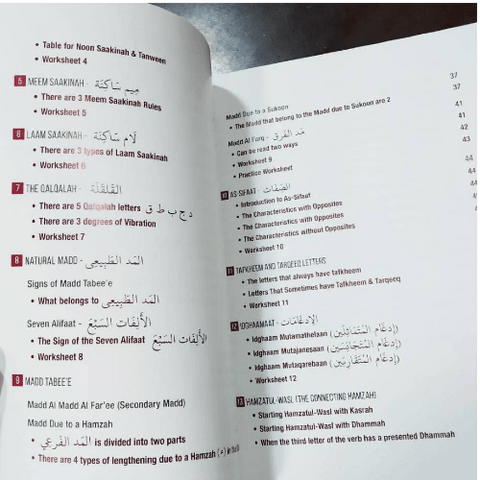 • Table for Noon Saakinah & Tanween
• Worksheet 4
5 MEEM SAAKINAH - مِيم سَاكِنَة
• There are 3 Meem Saakinah Rules
• Worksheet 5
6 LAAM SAAKINAH - لَام سَاكِنَة
• There are 3 types of Laam Saakinah
• Worksheet 6
7 THE QALQALAH - القَلقَلَة
• There are 5 Qalqalah letters ق ط ب ج د
• There are 3 degrees of Vibration
• Worksheet 7
8 NATURAL MADD - المَد الطَّبِيعِى
Signs of Madd Tabee'e
• What belongs to المَد الطَّبِيعِى
Seven Alifaat - الأَلِفَات السَّبْعَ
• The Sign of the Seven Alifaat الأَلِفَات السَّبْعَ
• Worksheet 8
9 MADD TABEE'E
Madd Al Madd Al Far'ee (Secondary Madd)
Madd Due to a Hamzah
• المَد الفَرْعِي is divided into two parts
• There are 4 types of lengthening due to a Hamzah (ء) in the
37
Madd Due to a Sukoon 37
• The Madd that belong to the Madd due to Sukoon are 2 41
Madd Al Farq - مَد الفَرق 41
• Can be read two ways 42
• Worksheet 9 43
• Practice Worksheet
10 AS-SIFAAT - الصِّفَات 44
• Introduction to As-Sifaat 44
• The Characteristics with Opposites
• The Characteristics with Opposites
• The Characteristics without Opposites
• Worksheet 10
11 TAFKHEEM AND TARQEEQ LETTERS
• The letters that always have tafkheem
• Letters That Sometimes have Tafkheem & Tarqeeq
• Worksheet 11
12 IDGHAAMAAT - الإِدغَامَات
• Idghaam Mutamathelaan (إِدغَام المُتَمَاثِلَين)
• Idghaam Mutajanesaan (إِدغَام المُتَجَانِسَين)
• Idghaam Mutaqarebaan (إِدغَام المُتَقَارِبَين)
• Worksheet 12
13 HAMZATUL-WASL (THE CONNECTING HAMZAH)
• Starting Hamzatul-Wasl with Kasrah
• Starting Hamzatul-Wasl with Dhammah
• When the third letter of the verb has a presented Dhammah